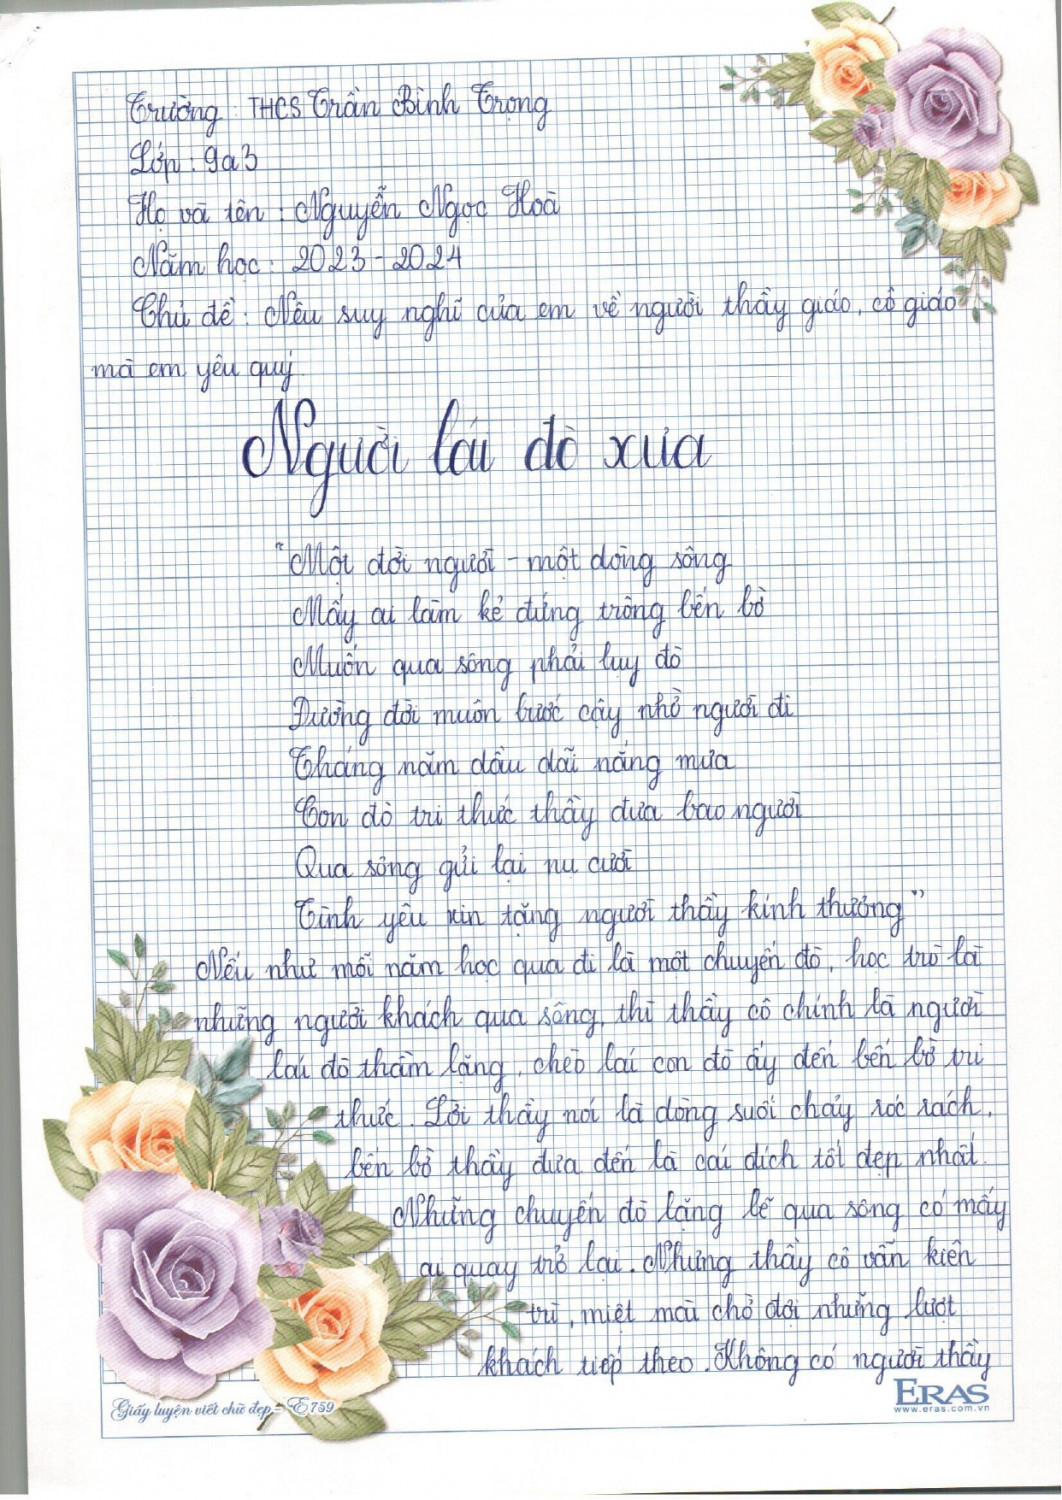 Trường : THCS Trần Bình Trọng
Lớp : 9a3
Họ và tên : Nguyễn Ngọc Hoà
Năm học : 2023 - 2024
Chủ đề : Nêu suy nghĩ của em về người thầy giáo, cô giáo
mà em yêu quý
Người lái đò xưa
"Một đời người - một dòng sông
Mấy ai làm kẻ đứng trông bến bờ
Muốn qua sông phải luỵ đò
Đường đời muôn bước cậy nhờ người đi
Tháng năm dầu dãi nắng mưa
Con đò tri thức thầy đưa bao người
Qua sông gửi lại nụ cười
Tình yêu xin tặng người thầy kính thương"
Nếu như mỗi năm học qua đi là một chuyến đò, học trò là
những người khách qua sông, thì thầy cô chính là người
lái đò thầm lặng, chèo lái con đò ấy đến bến bờ tri
thức. Lời thầy nói là dòng suối chảy róc rách,
bến bờ thầy đưa đến là cái đích tốt đẹp nhất.
Những chuyến đò lặng lẽ qua sông có mấy
ai quay trở lại. Nhưng thầy cô vẫn kiên
trì, miệt mài chờ đợi những lượt
khách tiếp theo. Không có người thầy
Giấy luyện viết chữ đẹp - E759
ERAS
www.eras.com.vn